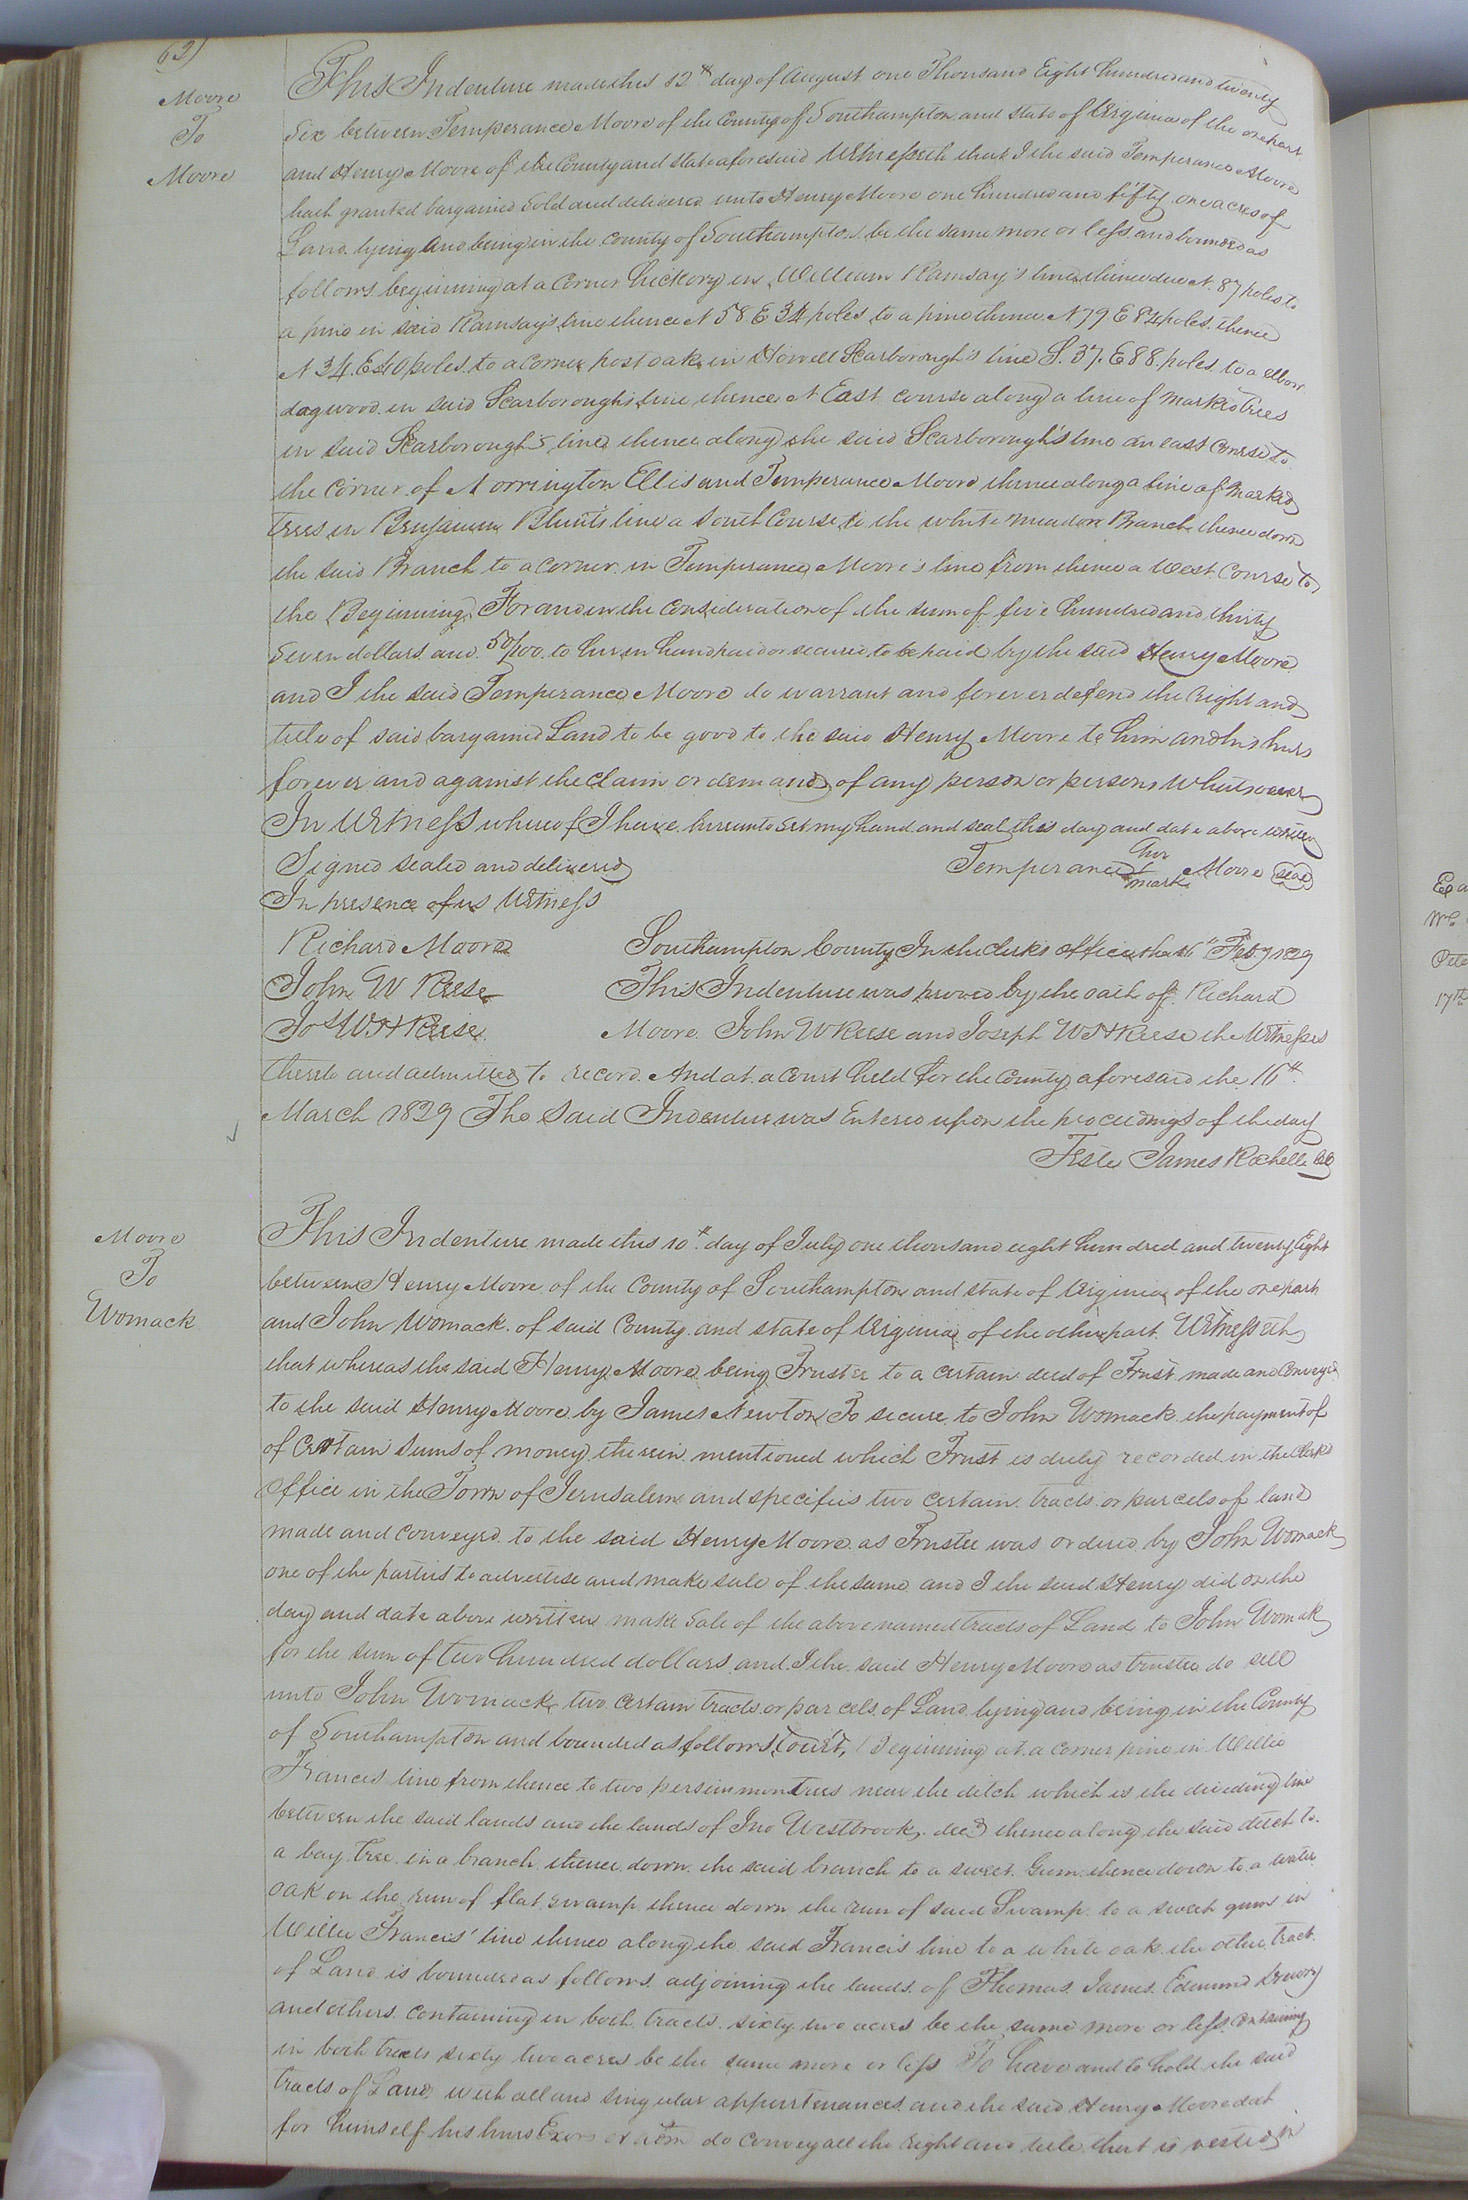 62)
Moore
To
Moore
This Indenture made this 12th day of August one Thousand Eight hundred and twenty
Six between Temperance Moore of the County of Southampton and state of Virginia of the one part
and Henry Moore of the County and state aforesaid Witnesseth that I the said Temperance Moore
hath granted bargained Sold and delivered unto Henry Moore one hundred and fifty one acres of
Land lying and being in the county of Southampton be the same more or less and bounded as
follows begining at a Corner hickory in William Ramsay's line thence due N. 87 poles to
a pine in said Ramsay's line thence N 58 E 34 poles to a pine thence N 79 E 84 poles thence
N 34. E 40 poles to a Corner post oak in Howell Scarborough's line S. 37. E 88. poles to a elbow
dogwood in said Scarborough's line thence N East course along a line of marked Trees
in said Scarborough's line thence along the said Scarborough's line an east Course to
the Corner of Norrington Ellis and Temperance Moore thence along a line of marked
Trees in Benjamin Blunt's line a South Course to the white meadow Branch thence down
the said Branch to a Corner in Temperance Moore's line from thence a West Course to
the Beginning For and in the Consideration of the sum of five hundred and thirty
Seven dollars and 50/100 to her in hand paid or secured to be paid by the said Henry Moore
and I the said Temperance Moore do warrant and forever defend the right and
title of said bargained Land to be good to the said Henry Moore to him and his heirs
forever and against the Claim or demand of any person or persons Whatsoever
In Witness whereof I have hereunto Set my hand and seal this day and date above written
Signed sealed and delivered Temperance her mark Moore seal
In presence of us Witness
Richard Moore Southampton County In the Clerk's Office the 16th Feby 1829
John W Reese This Indenture was proved by the oath of Richard
Jos W H Reese Moore John W Reese and Joseph W H Reese the Witnesses
thereto and admitted to record And at a Court held for the County aforesaid the 16th
March 1829 The Said Indenture was Entered upon the proceedings of the day
Teste James Rochelle
Moore
To
Womack
This Indenture made this 10th day of July one thousand eight hundred and twenty Eight
between Henry Moore of the County of Southampton and state of Virginia of the one part
and John Womack of said County and state of Virginia of the other part Witnesseth
that whereas the said Henry Moore being Trustee to a certain deed of Trust made and Conveyed
to the said Henry Moore by James Newton To secure to John Womack the payment of
of Certain Sums of money therein mentioned which Trust is duly recorded in the Clerks
Office in the Town of Jerusalem and specifies two certain tracts or parcels of land
made and conveyed to the said Henry Moore as Trustee was ordered by John Womack
one of the parties to advertise and make sale of the same and I the said Henry did on the
day and date above written make Sale of the above named tracts of Land to John Womak
for the sum of two hundred dollars and I the said Henry Moore as trustee do sell
unto John Womack two certain tracts or parcels of Land lying and being in the County
of Southampton and bounded as follows Beginning at a corner pine in Willie
Francis line from thence to two persimmon trees near the ditch which is the dividing line
between the said lands and the lands of Jno Westbrook decd thence along the said ditch to
a bay tree in a branch thence down the said branch to a sweet Gum thence down to a water
oak on the run of flat swamp thence down the run of said Swamp to a sweet gum in
Willie Francis' line thence along the said Francis line to a white oak the other tract
of Land is bounded as follows adjoining the lands of Thomas James Edmund Drewry
and others containing in both tracts sixty two acres be the same more or less containing
in both tracts sixty two acres be the same more or less To have and to hold the said
tracts of Land with all and singular appurtenances and the said Henry Moore doth
for himself his heirs Exors or adm do convey all the right and title that is vested in